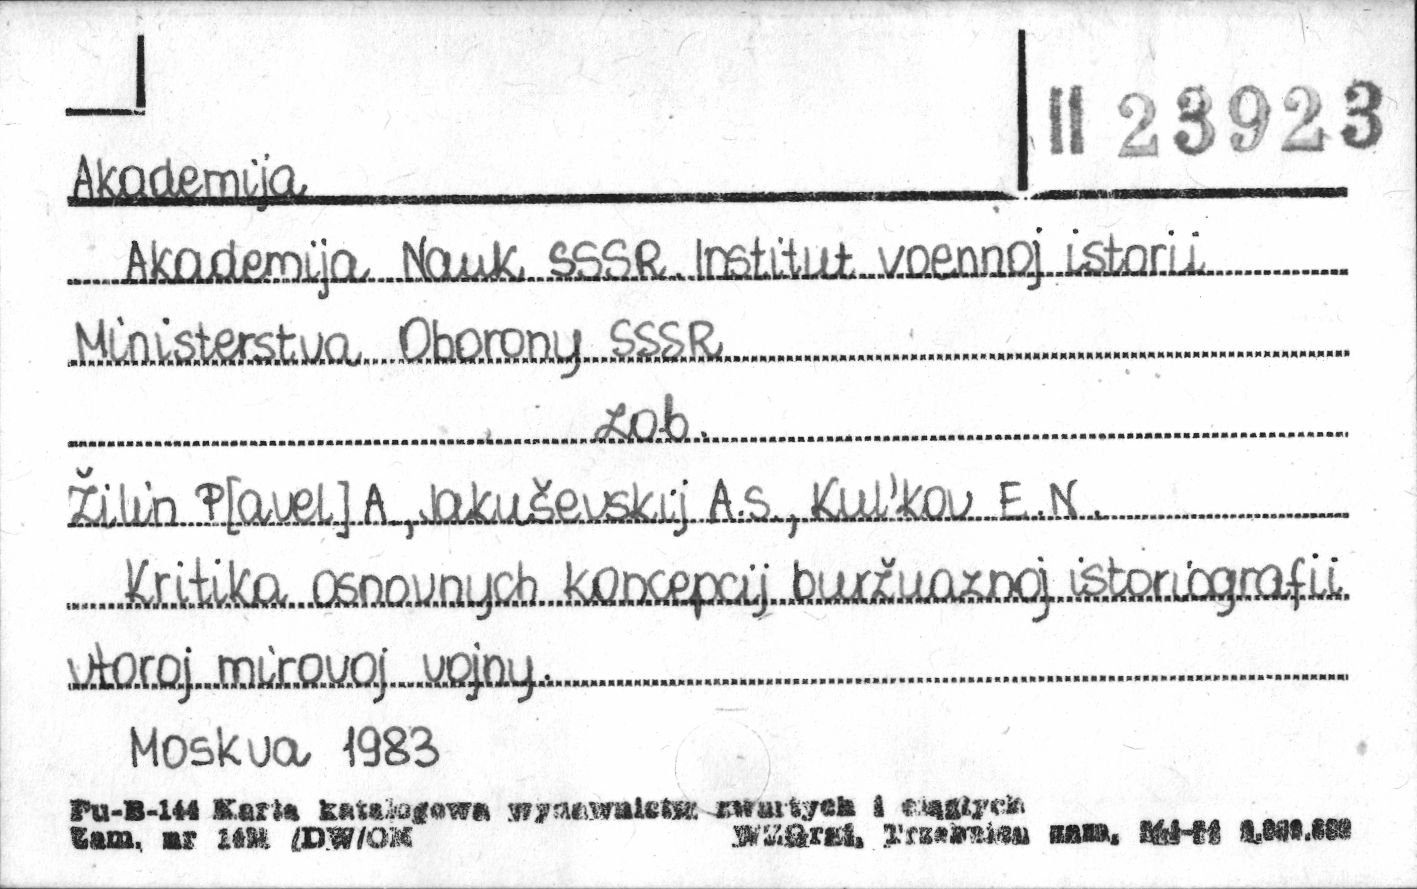 II 23923
Akademija
Akademija Nauk SSSR. Institut voennoj istorii
Ministerstva Oborony SSSR
zob.
Žilin P[avel] A., Jakuševskij A.S., Kul'kov E.N.
Kritika osnovnych koncepcij buržuaznoj istoriografii
vtoroj mirovoj vojny.
Moskva 1983
Pu-B-144 Karta katalogowa wydawnictw zwartych i ciągłych
Zam. nr /DW/OK WZGraf. Trzebnica zam.